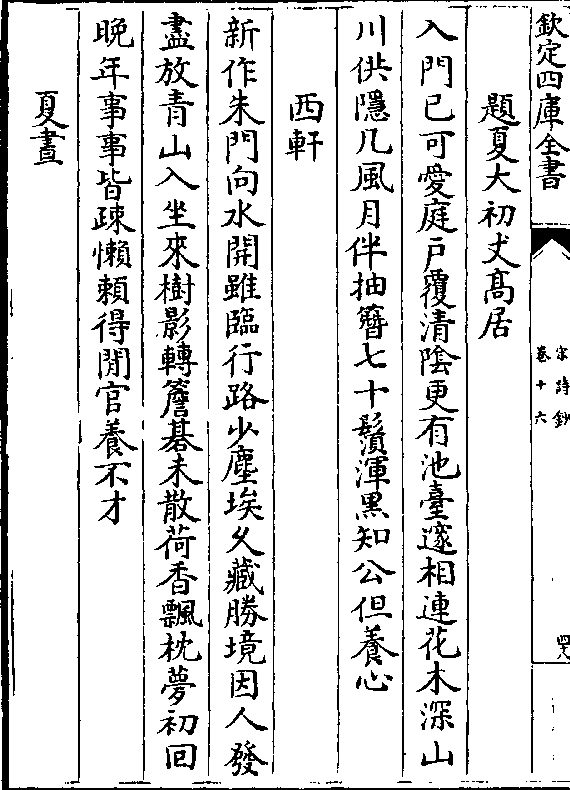 欽定四庫全書
宋詩鈔
卷十六
題夏大初丈髙居
入門已可愛庭戸覆清隂更有池臺邃相連花木深山
川供隱几風月伴抽簪七十鬚渾黑知公但養心
西軒
新作朱門向水開雖臨行路少塵埃乆藏勝境因人發
盡放青山入坐來樹影轉簷碁未散荷香飄枕夢初回
晚年事事皆疎懶頼得閒官養不才
夏晝